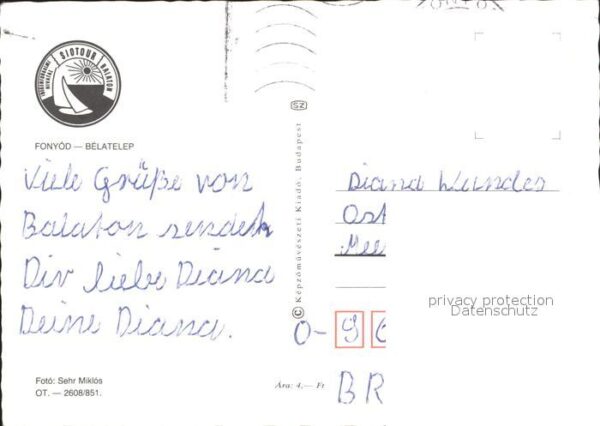 SIOTOUR BALATON
FONYÓD — BÉLATELEP
Viele Grüße von
Balaton sendet
Dir liebe Diana
Deine Diana.
Fotó: Sehr Miklós
OT. — 2608/851.
SZ
© Képzőművészeti Kiadó, Budapest
Ára: 4,— Ft
Diana Wunder
Ost
Mee
privacy protection
Datenschutz
O-9
BR